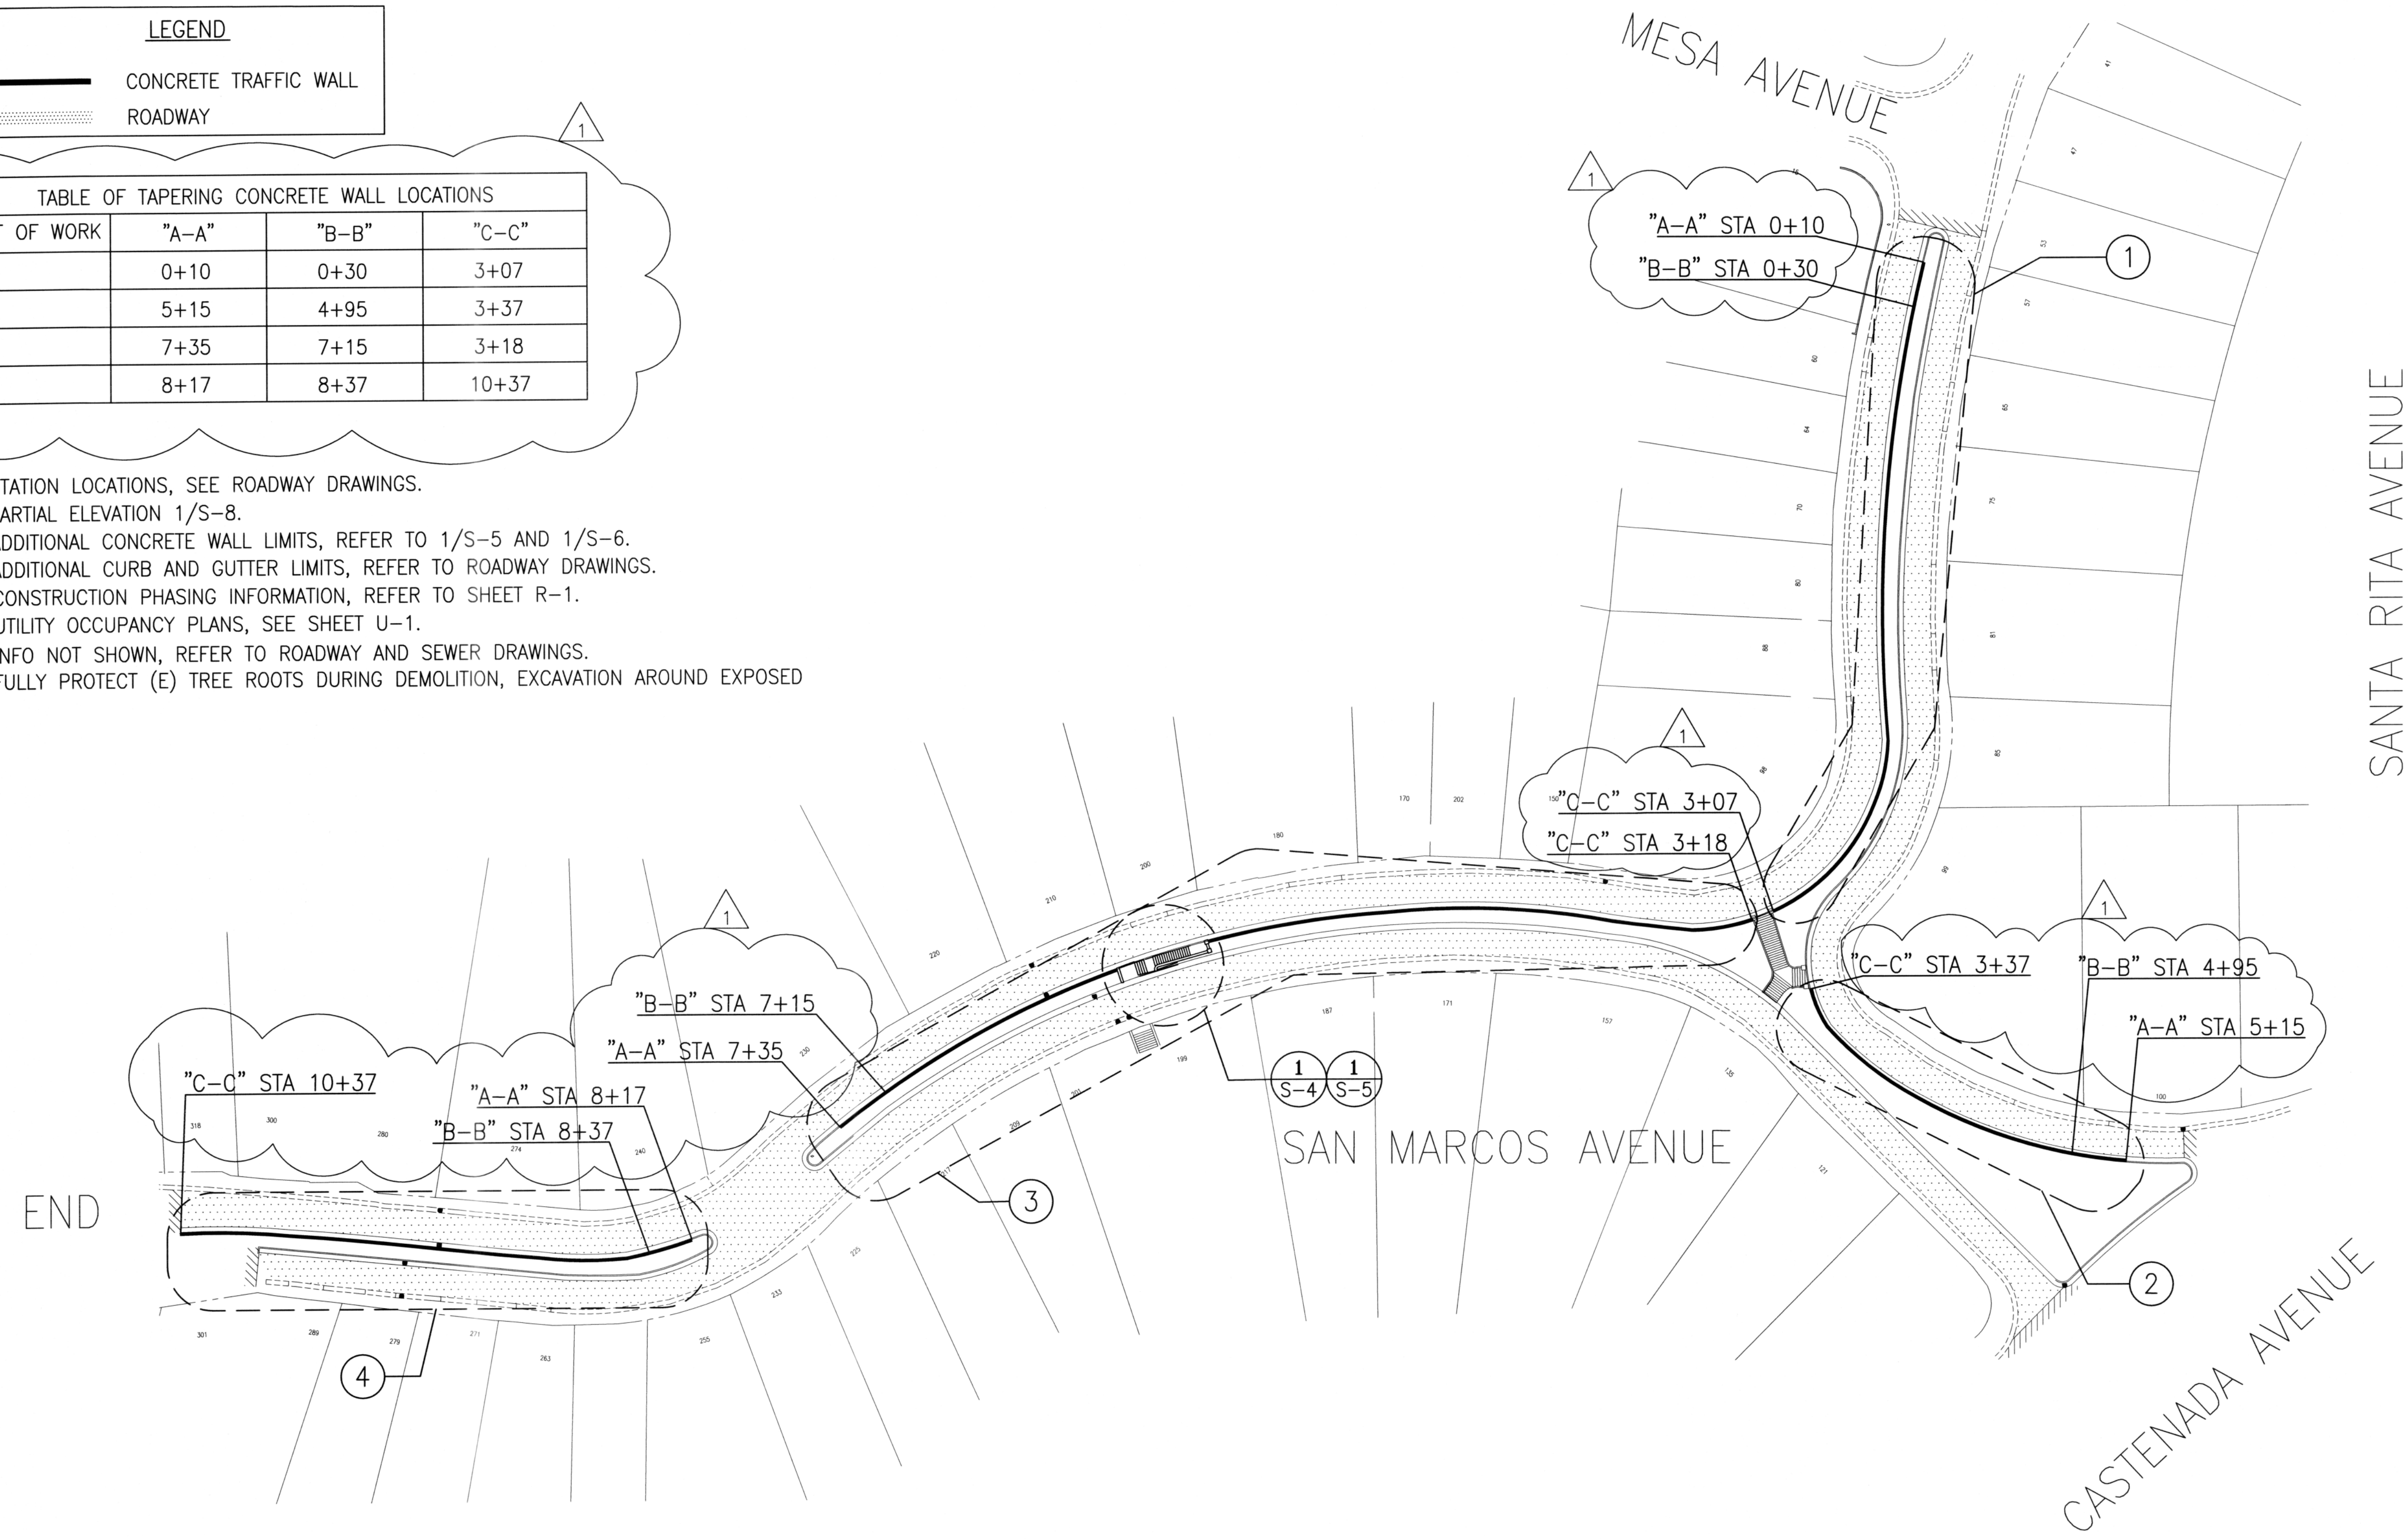 LEGEND
CONCRETE TRAFFIC WALL
ROADWAY
1
TABLE OF TAPERING CONCRETE WALL LOCATIONS
OF WORK "A-A" "B-B" "C-C"
0+10 0+30 3+07
5+15 4+95 3+37
7+35 7+15 3+18
8+17 8+37 10+37
TATION LOCATIONS, SEE ROADWAY DRAWINGS.
ARTIAL ELEVATION 1/S-8.
ADDITIONAL CONCRETE WALL LIMITS, REFER TO 1/S-5 AND 1/S-6.
ADDITIONAL CURB AND GUTTER LIMITS, REFER TO ROADWAY DRAWINGS.
CONSTRUCTION PHASING INFORMATION, REFER TO SHEET R-1.
UTILITY OCCUPANCY PLANS, SEE SHEET U-1.
INFO NOT SHOWN, REFER TO ROADWAY AND SEWER DRAWINGS.
FULLY PROTECT (E) TREE ROOTS DURING DEMOLITION, EXCAVATION AROUND EXPOSED
MESA AVENUE
1
"A-A" STA 0+10
"B-B" STA 0+30
1
41
47
53
57
65
75
81
85
99
60
64
70
80
88
98
SANTA RITA AVENUE
1
"C-C" STA 3+07
"C-C" STA 3+18
150
202
170
180
200
210
220
230
1
"C-C" STA 3+37
"B-B" STA 4+95
"A-A" STA 5+15
100
1
"B-B" STA 7+15
"A-A" STA 7+35
"C-C" STA 10+37
"A-A" STA 8+17
"B-B" STA 8+37
318
300
280
274
240
1
S-4
1
S-5
SAN MARCOS AVENUE
187
171
157
135
121
199
201
209
217
225
233
255
263
271
279
289
301
END
3
2
4
CASTENADA AVENUE